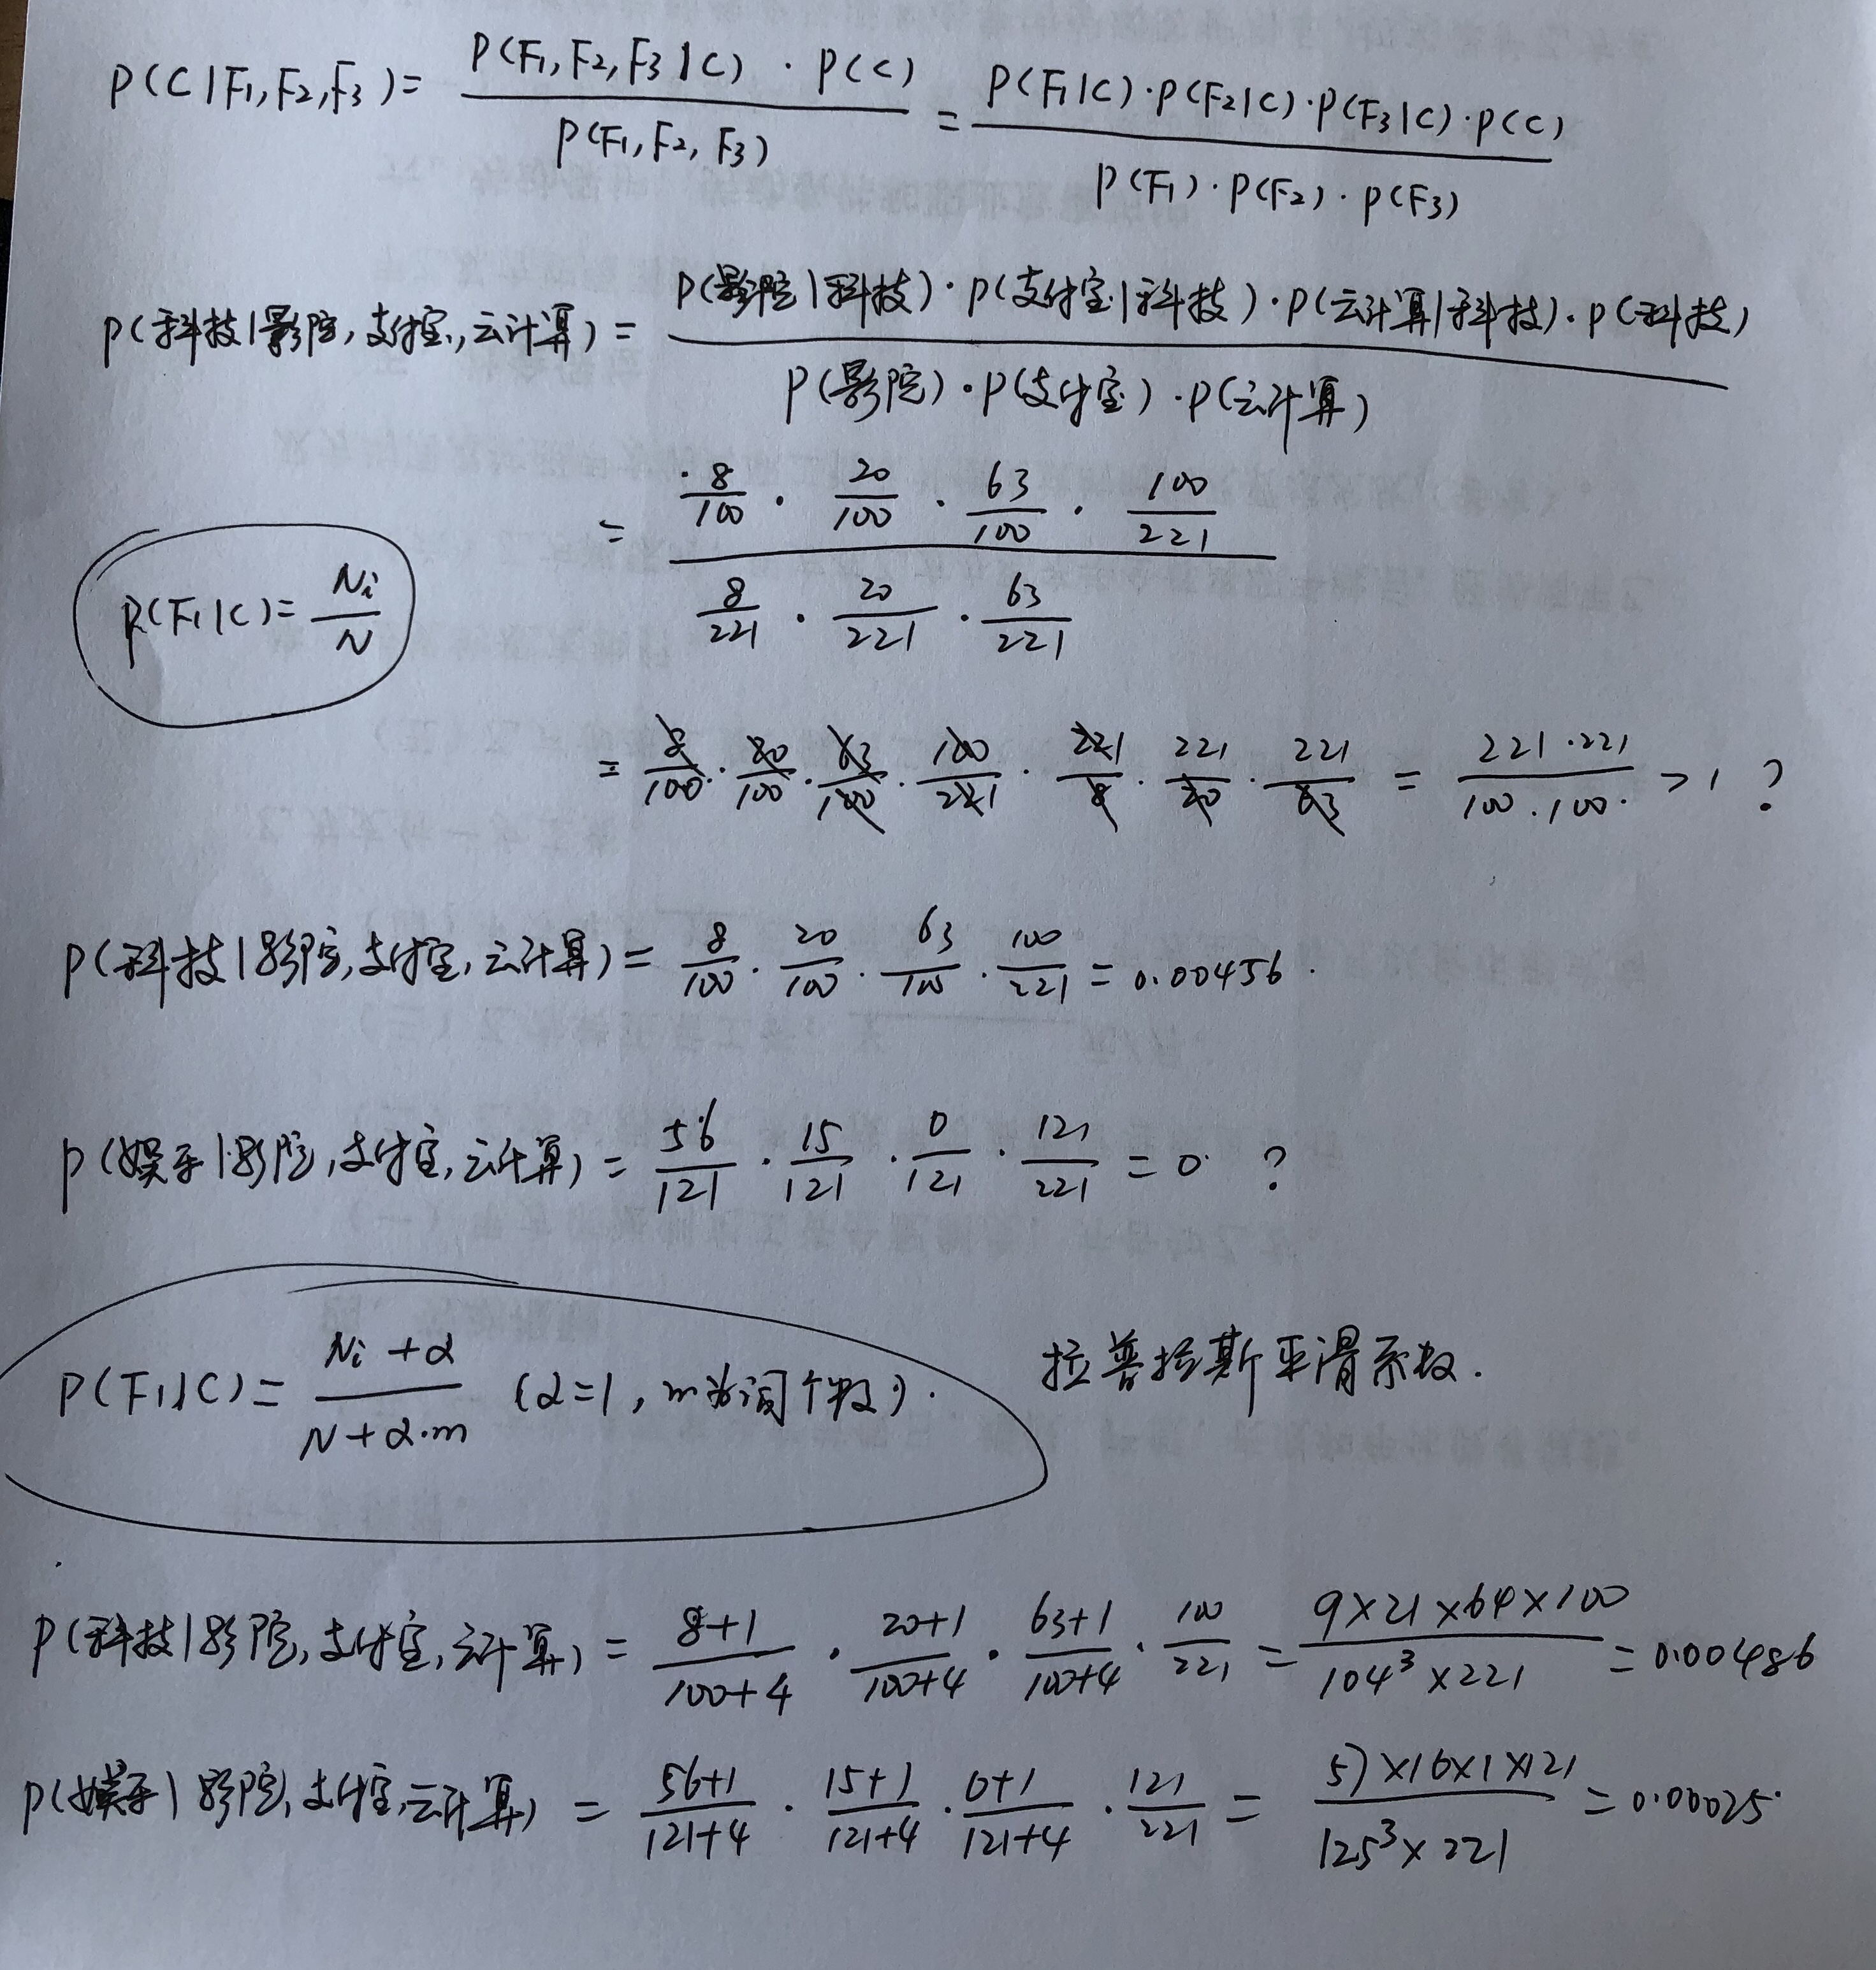 P(C|F1,F2,F3)= P(F1,F2,F3|C)·P(C) / P(F1,F2,F3) = P(F1|C)·P(F2|C)·P(F3|C)·P(C) / P(F1)·P(F2)·P(F3)
P(科技|影院,支付宝,云计算)= P(影院|科技)·P(支付宝|科技)·P(云计算|科技)·P(科技) / P(影院)·P(支付宝)·P(云计算)
= 8/100 · 20/100 · 63/100 · 100/221 / 8/221 · 20/221 · 63/221
P(F1|C)= Ni/N
= 8/100 · 20/100 · 63/100 · 100/221 · 221/8 · 221/20 · 221/63 = 221·221 / 100·100 >1 ?
P(科技|影院,支付宝,云计算)= 8/100 · 20/100 · 63/100 · 100/221 = 0.00456.
P(娱乐|影院,支付宝,云计算)= 56/121 · 15/121 · 0/121 · 121/221 = 0 ?
P(F1|C)= Ni+α / N+α·m (α=1, m为词个数). 拉普拉斯平滑系数.
P(科技|影院,支付宝,云计算)= 8+1/100+4 · 20+1/100+4 · 63+1/100+4 · 100/221 = 9×21×64×100 / 104³×221 = 0.00486
P(娱乐|影院,支付宝,云计算)= 56+1/121+4 · 15+1/121+4 · 0+1/121+4 · 121/221 = 57×16×1×121 / 125³×221 = 0.00025